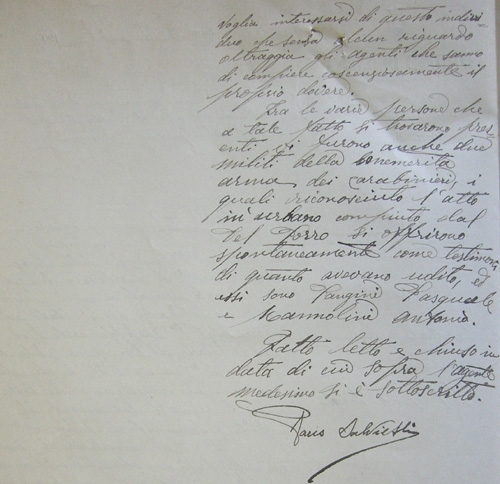 voglia interessarsi di questo indivi
duo che senza alcun riguardo
oltraggia gli agenti che sanno
di compiere coscenziosamente il
proprio dovere.
Fra le varie persone che
a tale fatto si trovarono pres
enti vi furono anche due
militi della benemerita
arma dei carabinieri, i
quali riconosciuto l'atto
inurbano compiuto dal
Del Porro si offrirono
spontaneamente come testimoni
di quanto avevano udito, ed
essi sono Pasquale
e Mannolini Antonio.
Fatto letto e chiuso in
data di cui sopra l'agente
medesimo si è sottoscritto.